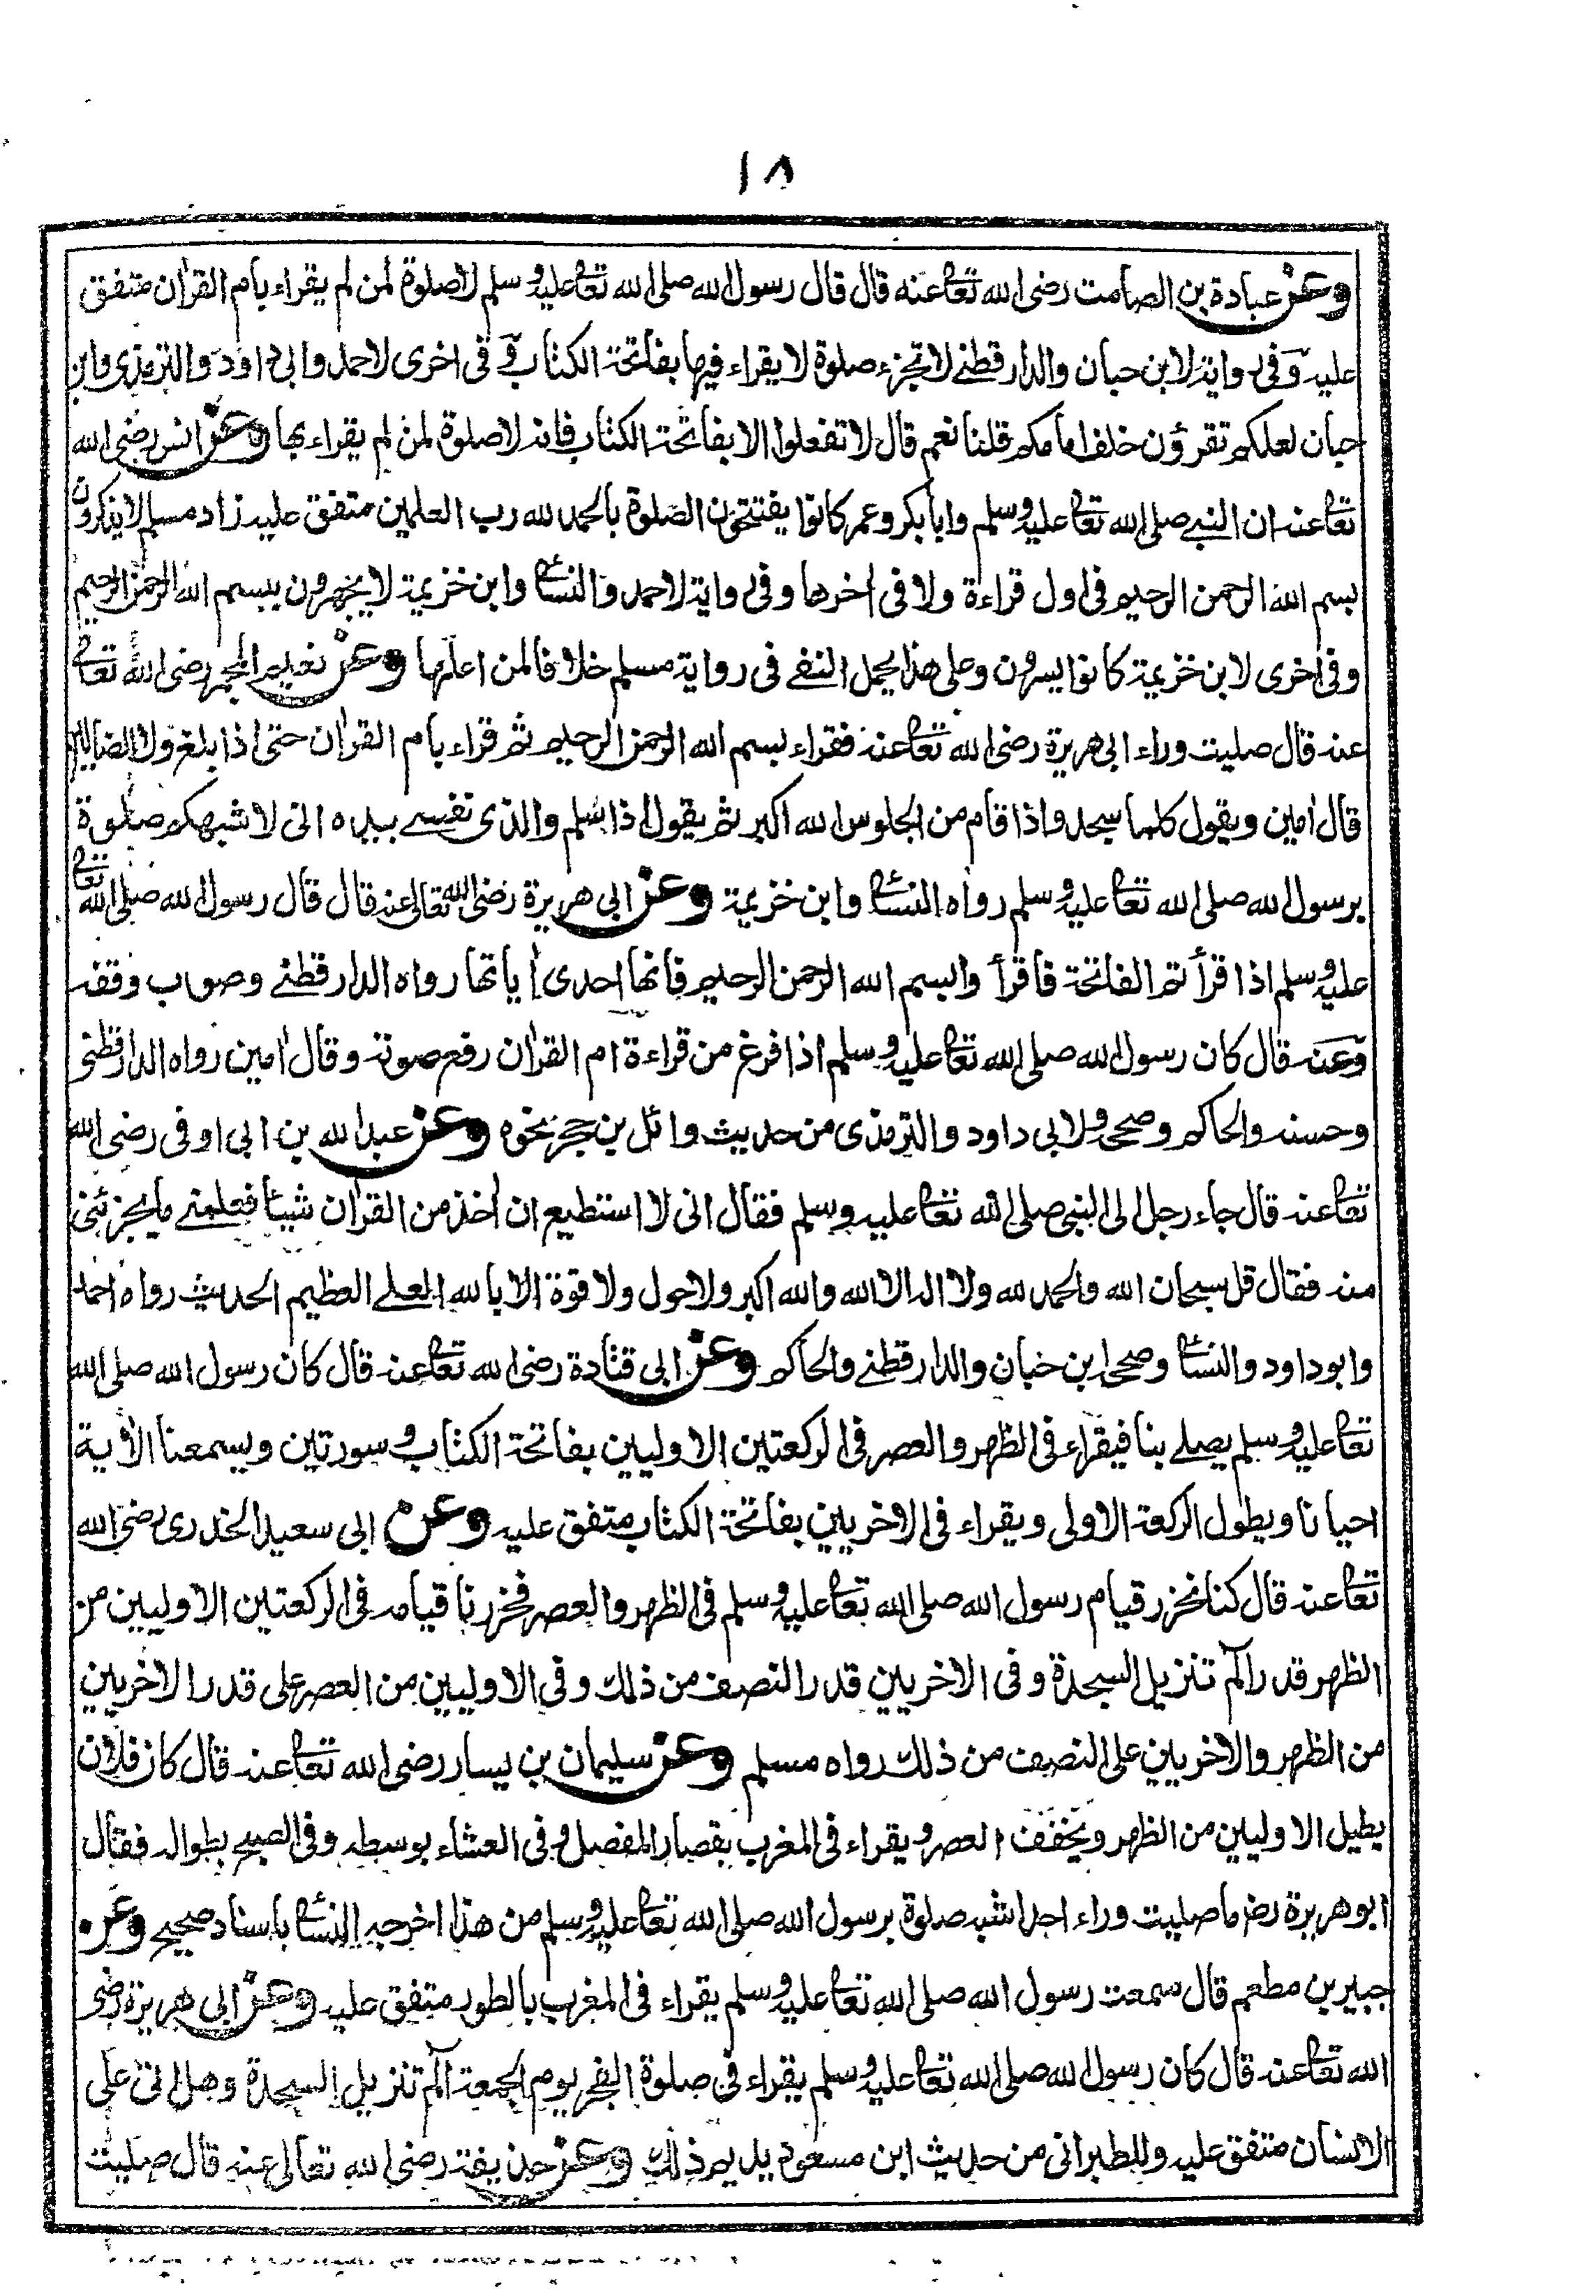 ١٨
وعن عبادة بن الصامت رضى الله تعا عنه قال قال رسول الله صلى الله تعا عليه وسلم لاصلوة لمن لم يقراء بام القراٰن متفق
عليه وفى رواية لابن حبان والدارقطنے لا تجزء صلوة لا يقراء فيها بفاتحة الكتاب وفى اخرى لاحمد وابى داود والترمذى وابن
حبان لعلكم تقرؤن خلف امامكم قلنا نعم قال لا تفعلوا الا بفاتحة الكتاب فانه لاصلوة لمن لم يقراء بها وعن انس رضى الله
تعا عنه ان النبے صلى الله تعا عليه وسلم وابا بكر وعمر كانوا يفتتحون الصلوة بالحمد لله رب العلمين متفق عليه زاد مسلم لايذكرون
بسم الله الرحمن الرحيم فى اول قراءة ولا فى اخرها وفى رواية لاحمد والنسائ وابن خزيمة لا يجهرون ببسم الله الرحمن الرحيم
وفى اخرى لابن خزيمة كانوا يسرون وعلى هذا يحمل النفے فى رواية مسلم خلافا لمن اعلها وعن نعيم المجمر رضى الله تعا
عنه قال صليت وراء ابى هريرة رضى الله تعا عنه فقراء بسم الله الرحمن الرحيم ثم قراء بام القراٰن حتى اذا بلغ ولا الضالين
قال اٰمين ويقول كلما سجد واذا قام من الجلوس الله اكبر ثم يقول اذا سلم والذى نفسے بيده انى لاشبهكم صلوة
برسول الله صلى الله تعا عليه وسلم رواه النسائ وابن خزيمة وعن ابى هريرة رضى الله تعالى عنه قال قال رسول الله صلى الله تعا
عليه وسلم اذا قرأتم الفاتحة فاقرأوا بسم الله الرحمن الرحيم فانها احدى اٰياتها رواه الدارقطنے وصوب وقفه
وعنه قال كان رسول الله صلى الله تعا عليه وسلم اذا فرغ من قراءة ام القراٰن رفع صوته وقال اٰمين رواه الدارقطنى
وحسنه والحاكم وصححه ولابى داود والترمذى من حديث وائل بن حجر نحوه وعن عبد الله بن ابى اوفى رضى الله
تعا عنه قال جاء رجل الى النبى صلى الله تعا عليه وسلم فقال انى لا استطيع ان اٰخذ من القراٰن شيئا فعلمنے ما يجزئنى
منه فقال قل سبحان الله والحمد لله ولا اله الا الله والله اكبر ولاحول ولا قوة الا بالله العلے العظيم الحديث رواه احمد
وابوداود والنسائ وصححه ابن حبان والدارقطنے والحاكم وعن ابى قتادة رضى الله تعا عنه قال كان رسول الله صلى الله
تعا عليه وسلم يصلے بنا فيقراء فى الظهر والعصر فى الركعتين الاوليين بفاتحة الكتاب وسورتين ويسمعنا الاٰية
احيانا ويطول الركعة الاولى ويقراء فى الاخريين بفاتحة الكتاب متفق عليه وعن ابى سعيد الخدرى رضى الله
تعا عنه قال كنا نحزر قيام رسول الله صلى الله تعا عليه وسلم فى الظهر والعصر فحزرنا قيامه فى الركعتين الاوليين من
الظهر قدر الٓم تنزيل السجدة وفى الاخريين قدر النصف من ذلك وفى الاوليين من العصر على قدر الاخريين
من الظهر والاخريين على النصف من ذلك رواه مسلم وعن سليمان بن يسار رضى الله تعا عنه قال كان فلان
يطيل الاوليين من الظهر ويخفف العصر ويقراء فى المغرب بقصار المفصل وفى العشاء بوسطه وفى الصبح بطواله فقال
ابوهريرة رضہ ما صليت وراء احد اشبه صلوة برسول الله صلى الله تعا عليه وسلم من هذا اخرجه النسائ باسناد صحيح وعن
جبير بن مطعم قال سمعت رسول الله صلى الله تعا عليه وسلم يقراء فى المغرب بالطور متفق عليه وعن ابى هريرة رضى
الله تعا عنه قال كان رسول الله صلى الله تعا عليه وسلم يقراء فى صلوة الفجر يوم الجمعة الٓم تنزيل السجدة وهل اتىٰ على
الانسان متفق عليه وللطبرانى من حديث ابن مسعود يديم ذلك وعن حذيفة رضى الله تعالى عنه قال صليت